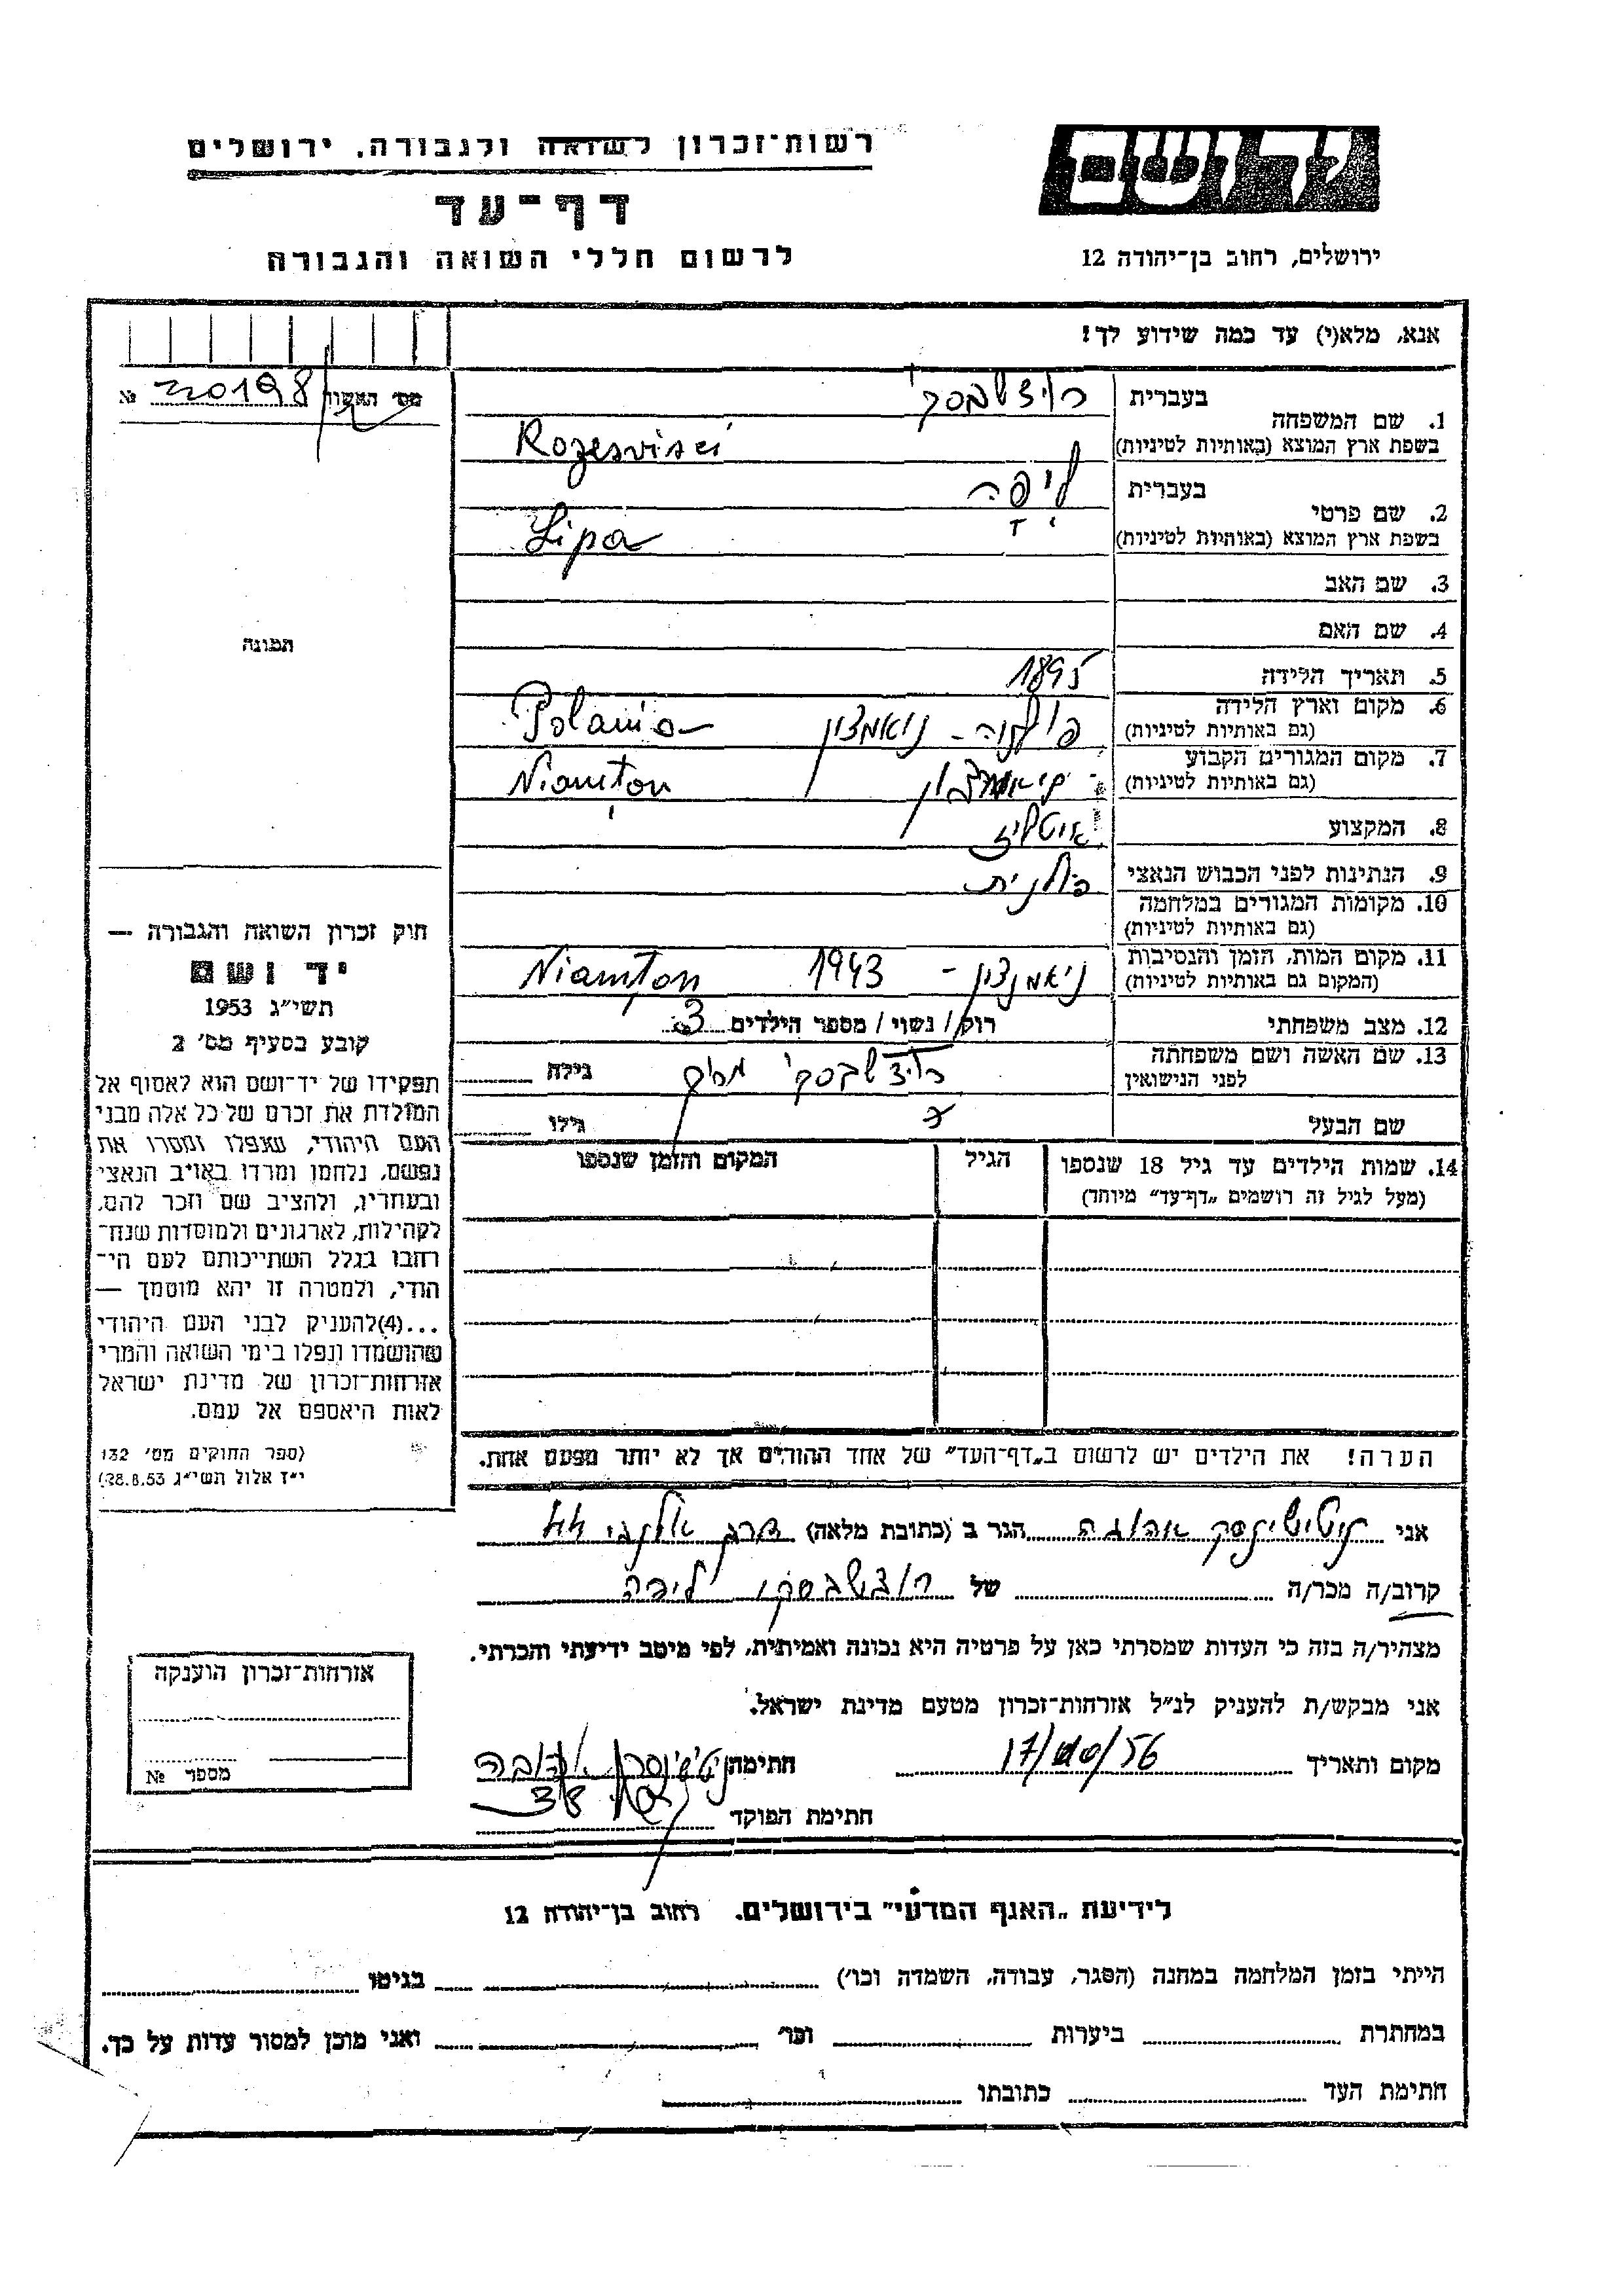 רשות־זכרון לשואה ולגבורה, ירושלים
דף־עד
לרשום חללי השואה והגבורה
יד ושם
ירושלים, רחוב בן־יהודה 12
אנא, מלא(י) עד כמה שידוע לך!
מס' האשור № 220198
תמונה
1. שם המשפחה
בעברית
בשפת ארץ המוצא (באותיות לטיניות) Rozesvisci
2. שם פרטי
בעברית ליפה
בשפת ארץ המוצא (באותיות לטיניות) Lipa
3. שם האב
4. שם האם
5. תאריך הלידה 1895
6. מקום וארץ הלידה
(גם באותיות לטיניות) פולניה - ניאמצון Polania
7. מקום המגורים הקבוע
(גם באותיות לטיניות) Niamton
8. המקצוע איטליז
9. הנתינות לפני הכבוש הנאצי פולנית
10. מקומות המגורים במלחמה
(גם באותיות לטיניות)
11. מקום המות, הזמן והנסיבות
(המקום גם באותיות לטיניות) ניאמצון - 1943 Niamton
12. מצב משפחתי רוק / נשוי / מספר הילדים 3
13. שם האשה ושם משפחתה
לפני הנישואין גילה
שם הבעל גילו
14. שמות הילדים עד גיל 18 שנספו
(מעל לגיל זה רושמים „דף־עד" מיוחד)
הגיל
המקום והזמן שנספו
הערה! את הילדים יש לרשום ב„דף־העד" של אחד ההורים אך לא יותר מפעם אחת.
חוק זכרון השואה והגבורה —
יד ושם
תשי"ג 1953
קובע בסעיף מס' 2
תפקידו של יד־ושם הוא לאסוף אל
המולדת את זכרם של כל אלה מבני
העם היהודי, שנפלו ומסרו את
נפשם, נלחמו ומרדו באויב הנאצי
ובעוזריו, ולהציב שם וזכר להם,
לקהילות, לארגונים ולמוסדות שנח־
רבו בגלל השתייכותם לעם הי־
הודי, ולמטרה זו יהא מוסמך —
...(4)להעניק לבני העם היהודי
שהושמדו ונפלו בימי השואה והמרי
אזרחות־זכרון של מדינת ישראל
לאות היאספם אל עמם.
(ספר החוקים מס' 132
י"ז אלול תשי"ג 28.8.53)
אני הגר ב (כתובת מלאה) 44
קרוב/ה מכר/ה של ליפה
מצהיר/ה בזה כי העדות שמסרתי כאן על פרטיה היא נכונה ואמיתית, לפי מיטב ידיעתי והכרתי.
אני מבקש/ת להעניק לנ"ל אזרחות־זכרון מטעם מדינת ישראל.
מקום ותאריך חתימה
חתימת הפוקד
אזרחות־זכרון הוענקה
מספר №
לידיעת „האגף המדעי" בירושלים. רחוב בן־יהודה 12
הייתי בזמן המלחמה במחנה (הסגר, עבודה, השמדה וכו') בגיטו
במחתרת ביערות וכו' ואני מוכן למסור עדות על כך.
חתימת העד כתובתו